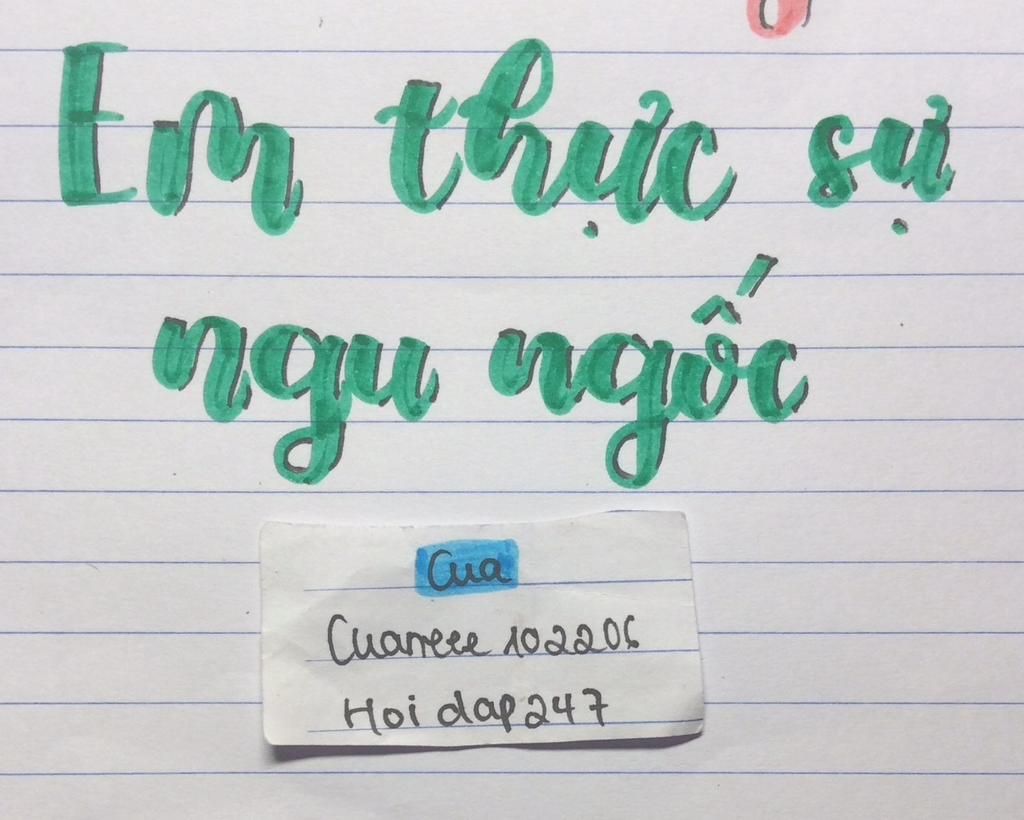 Em thực sự
ngu ngốc
Cua
Cuaneee 102206
Hoi dap 247